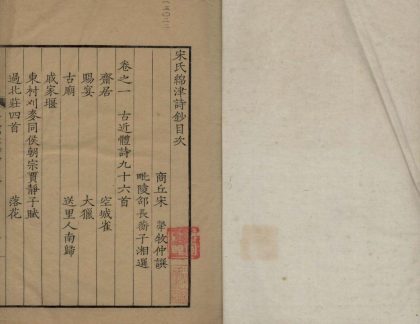 宋氏綿津詩鈔目次
商丘宋 犖牧仲譔
毗陵邵長蘅子湘選
卷之一 古近體詩九十六首
齋居 空城雀
賜宴 大獵
古廟 送里人南歸
戚家堰
東村刈麥同侯朝宗賈靜子賦
過北莊四首 落花